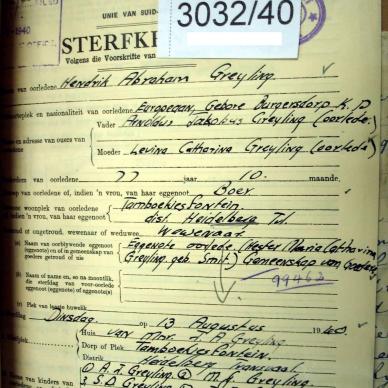 UNIE VAN SUID-
3032/40
1940
STERFK
Volgens die Voorskrifte van
van oorledene Hendrik Abraham Greyling
en nasionaliteit van oorledene Europeaan, Gebore Burgersdorp K.P.
Vader Arnoldus Jakobus Greyling (oorlede)
en adresse van ouers van oorledene
Moeder Levina Catharina Greyling (oorlede)
van oorledene 77 jaar 10. maande.
van oorledene of, indien 'n vrou, van haar eggenoot Boer
woonplek van oorledene, indien 'n vrou, van haar eggenoot Tamboekiesfontein.
dist. Heidelberg Tvl.
of ongetroud, wewenaar of weduwee Wewenaar
(a) Naam van oorblywende eggenoot (eggenote) en of in gemeenskap van goedere getroud of nie Eggenote oorlede (Hester Maria Catharina
Greyling geb. Smit) Gemeenskap van
99462
(b) Naam of name en, so na moontlik, die sterfdag van voor-oorledene eggenoot (eggenote) of eggenote(s)
(c) Plek van laaste huwelik
Dinsdag op 13 Augustus 1940.
Huis van Mnr. J. A. Greyling
Dorp of Plek Tamboekiesfontein.
Distrik Heidelberg Transvaal
Name van kinders van A. J. Greyling M. J. Greyling
S. D. Greyling